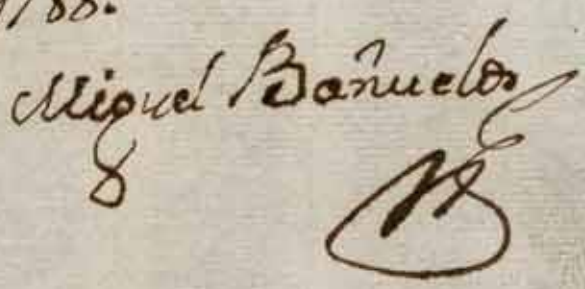 1788.
Miguel Bañuelos